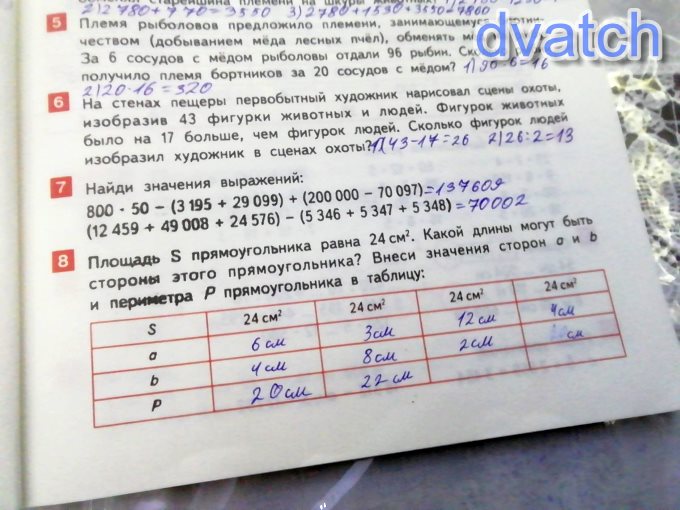 племени на шкуры
2)2780+770=3550 3)2780+1530+3550=7800
5 Племя рыболовов предложило племени, занимающемуся
чеством (добыванием мёда лесных пчёл), обменять
dvatch
За 6 сосудов с мёдом рыболовы отдали 96 рыбин.
получило племя бортников за 20 сосудов с мёдом? 1)96:6=16
2)20·16=320
6 На стенах пещеры первобытный художник нарисовал сцены охоты,
изобразив 43 фигурки животных и людей. Фигурок животных
было на 17 больше, чем фигурок людей. Сколько фигурок людей
изобразил художник в сценах охоты? 1)43-17=26 2)26:2=13
7 Найди значения выражений:
800 · 50 – (3 195 + 29 099) + (200 000 – 70 097)=137609
(12 459 + 49 008 + 24 576) – (5 346 + 5 347 + 5 348)=70002
8 Площадь S прямоугольника равна 24 см². Какой длины могут быть
стороны этого прямоугольника? Внеси значения сторон a и b
и периметра P прямоугольника в таблицу:
S 24 см² 24 см² 24 см² 24 см²
a 6 см 3см 12 см 4см
b 4см 8см 2см см
P 20см 22 см